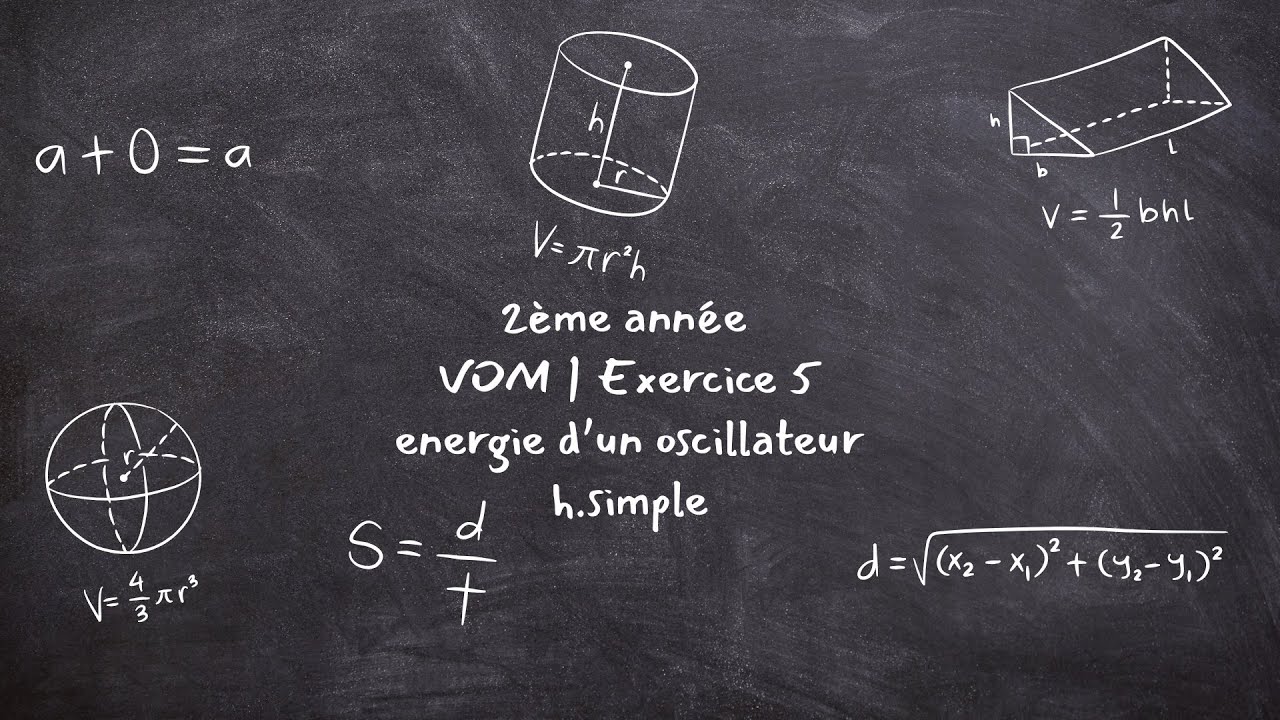 a + 0 = a
h
r
V = πr²h
h
b
l
V = 1/2 bhl
2ème année
VOM | Exercice 5
energie d'un oscillateur
h.simple
r
V = 4/3 πr³
S = d/t
d = √(x₂ - x₁)² + (y₂ - y₁)²